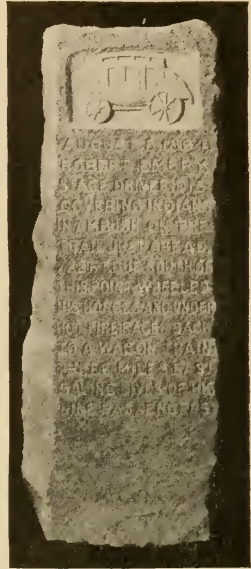 AUGUST
ROBERT EMERY
STAGE DRIVER DIS
COVERING INDIANS
IN AMBUSH ON THE
TRAIL JUST AHEAD
DUE NORTH OF
THIS POINT WHEELED
HIS HORSES AND UNDER
HOT FIRE RACED BACK
TO A WAGON TRAIN
MILES EAST
SAVING LIVES OF HIS
NINE PASSENGERS